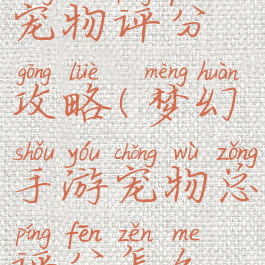 宠物评分
gōng lüè mèng huàn
攻略(梦幻
shǒu yóu chǒng wù zǒng
手游宠物总
píng fēn zěn me